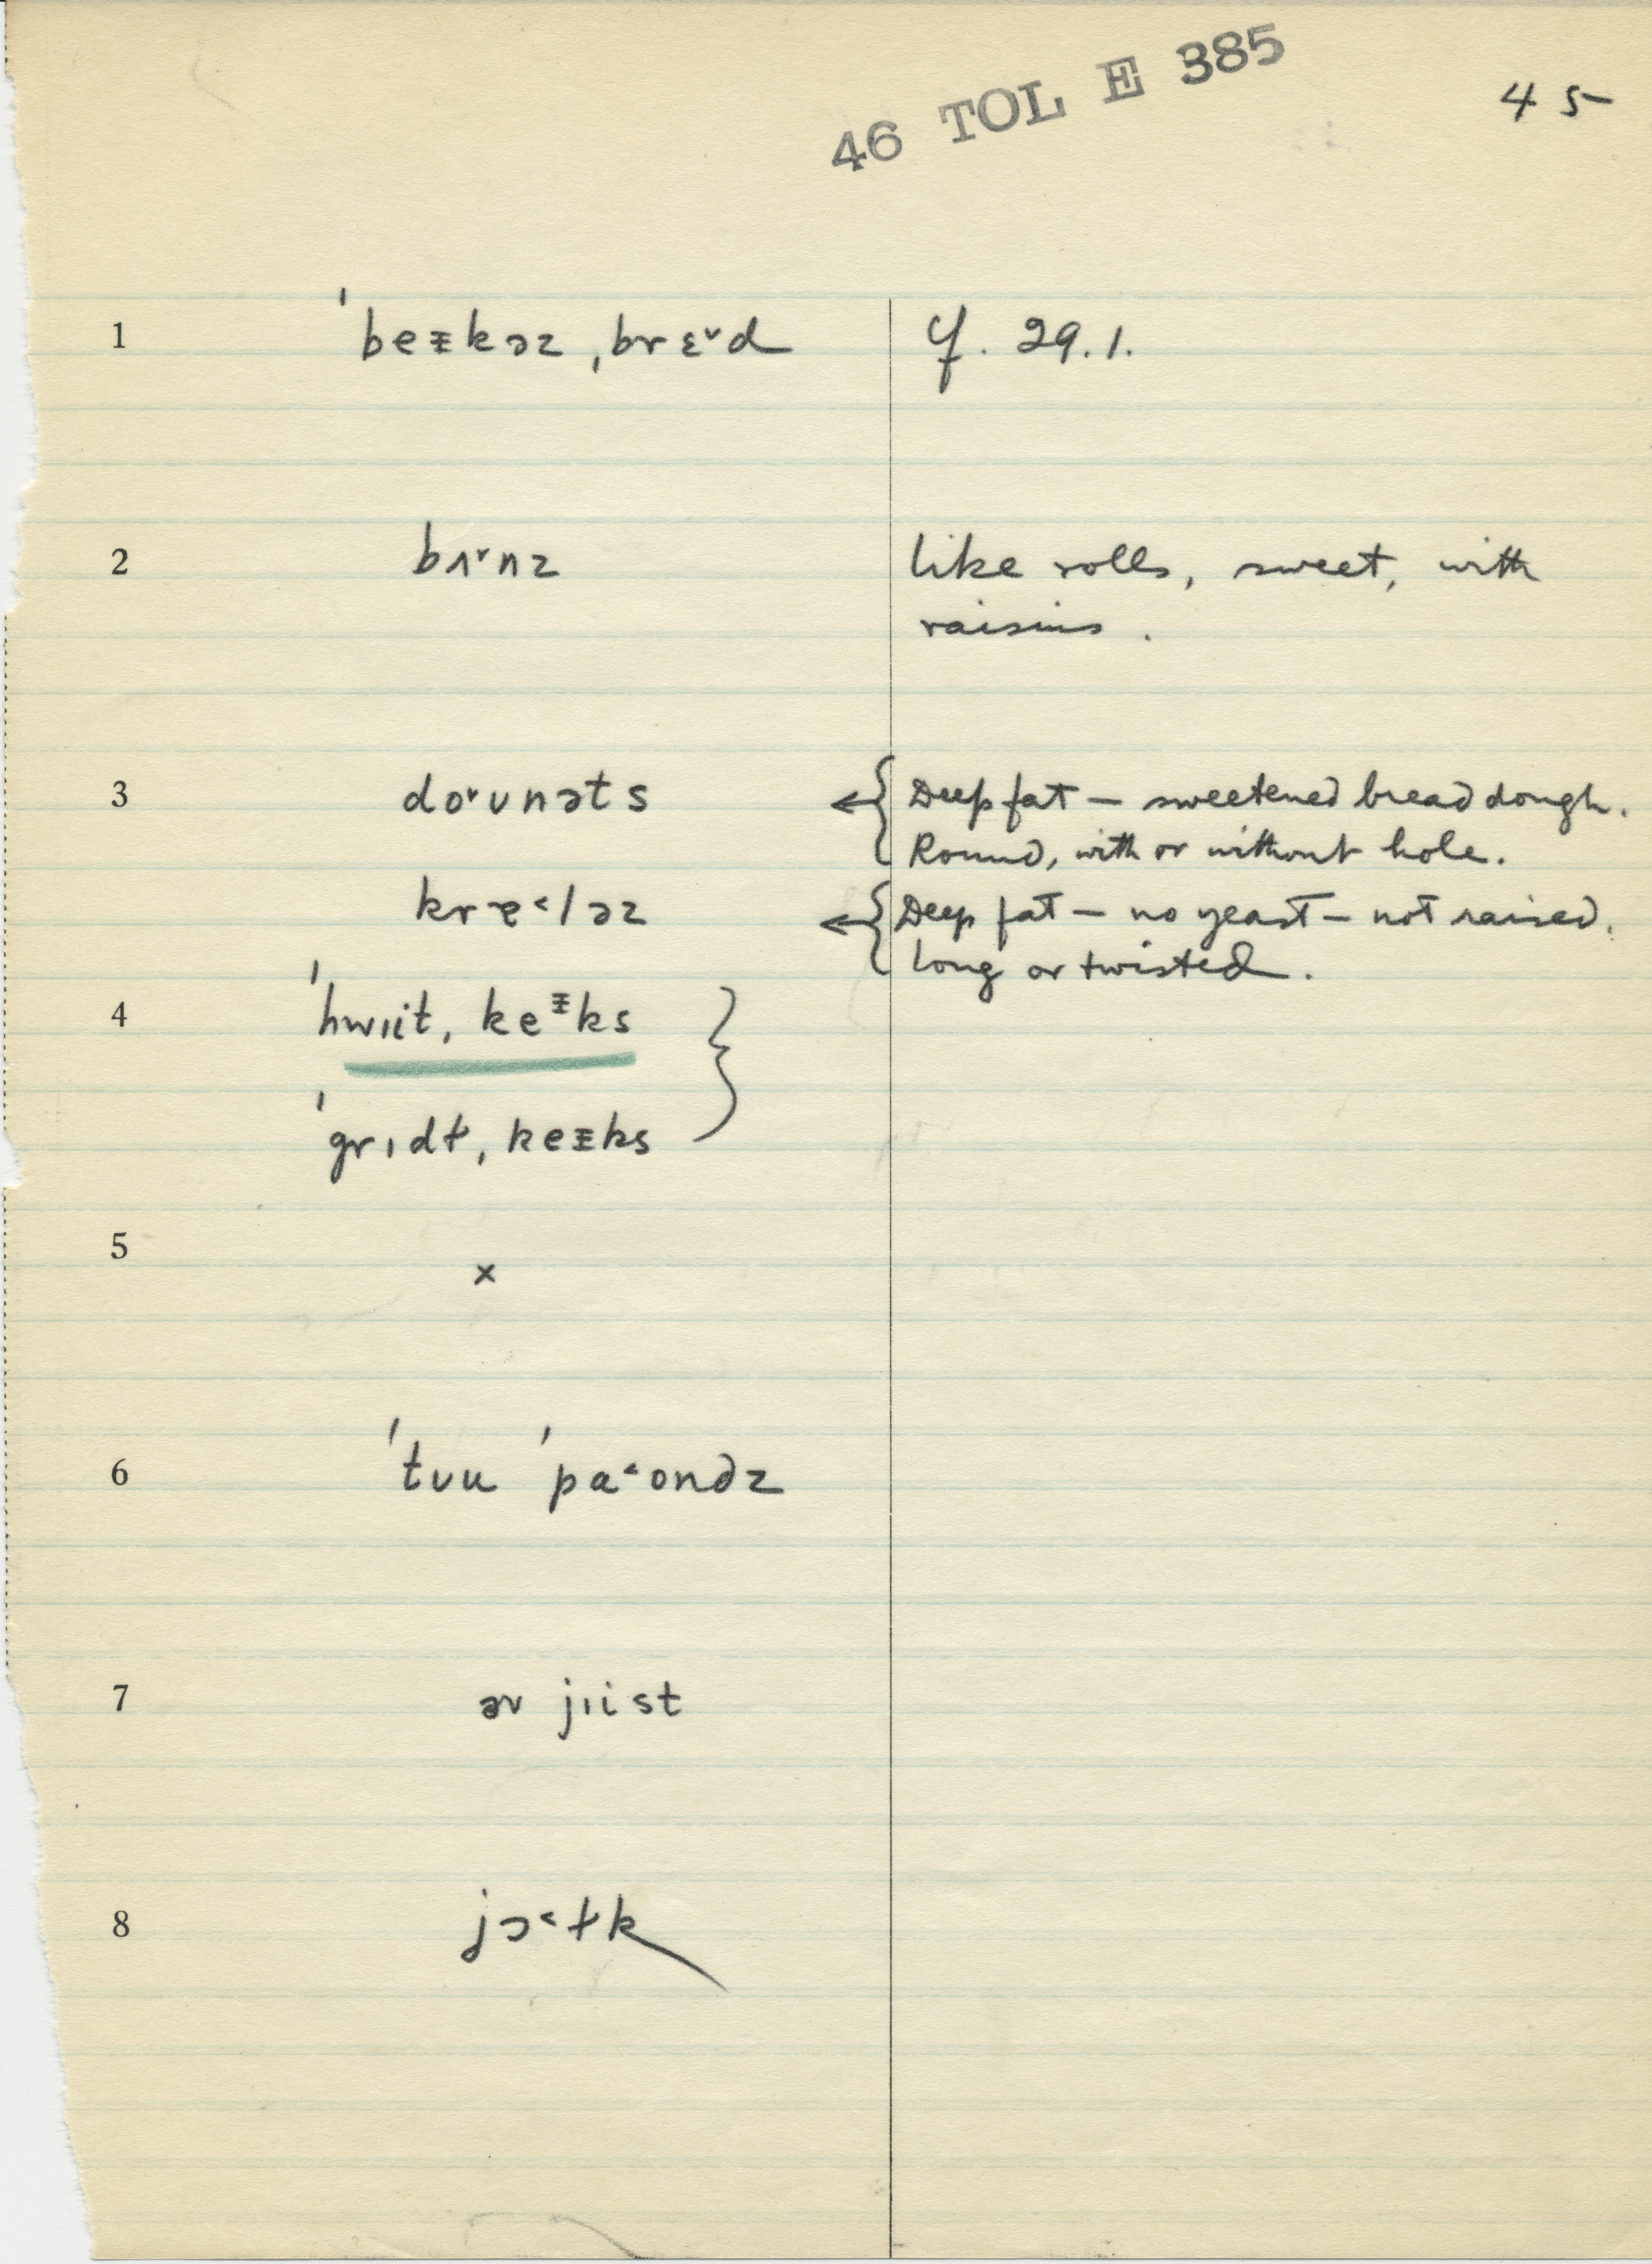 46 TOL E 385
45
1 ˈbeᵻkəz ˌbrɛ˅d cf. 29.1.
2 bʌ˅nz like rolls, sweet, with
raisins.
3 do˅ʊnəts ← { Deep fat — sweetened bread dough.
Round, with or without hole.
krɐ˂ləz ← { Deep fat — no yeast — not raised.
long or twisted.
4 ˈhwɪit ˌkeᵻks }
ˈgrɪdɫ ˌkeᵻks
5 x
6 ˈtʊu ˈpa˂ondz
7 əv jɪist
8 jɔ˂ɫk